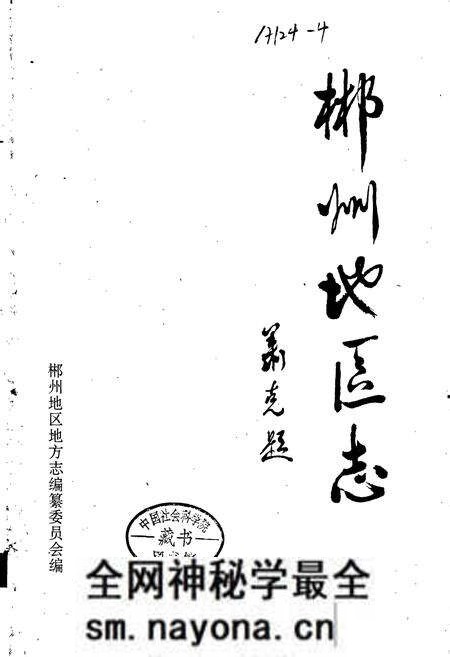 17124-4
郴州地区志
萧克题
郴州地区地方志编纂委员会编
中国社会科学院
藏书
全网神秘学最全
sm.nayona.cn